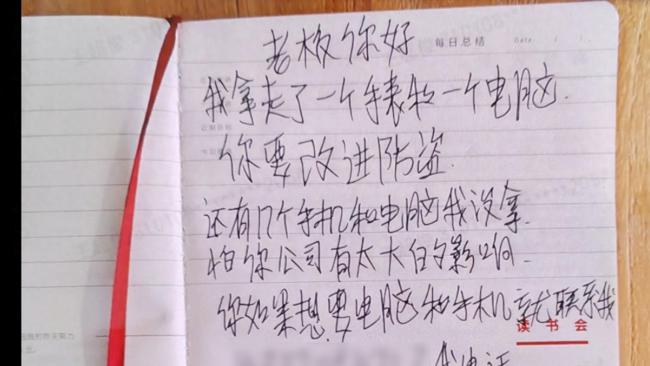 每日总结 Date:
老板你好
我拿走了一个手表和一个电脑.
你要改进防盗.
还有几个手机和电脑我没拿.
怕你公司有太大的影响.
你如果想要电脑和手机就联系我
读书会
我电话